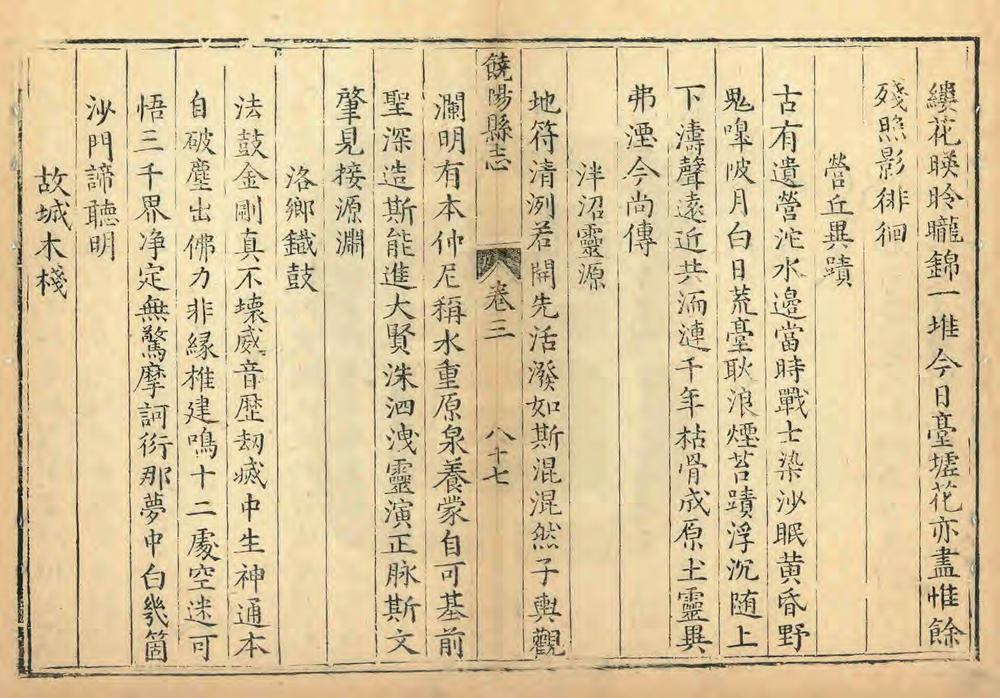 縷花暎暎曨錦一堆今日臺墟花亦盡惟餘
殘照影徘徊
營丘異蹟
古有遺營沱水邊當時戰士染沙眠黄昏野
鬼嘷皎月白日荒臺耿浪煙苔蹟浮沉随上
下濤聲遠近共漪漣千年枯骨成原土靈異
弗湮今尚傳
泮沼靈源
地符清洌若開先活潑如斯混混然子輿觀
饒陽縣志
卷三
八十七
瀾明有本仲尼稱水重原泉養蒙自可基前
聖深造斯能進大賢洙泗洩靈演正脉斯文
肇見接源淵
洛鄉鐵鼓
法鼓金剛真不壞威音歷刼滅中生神通本
自破塵出佛力非緣椎建鳴十二處空迷可
悟三千界净定無驚摩訶衍那夢中白幾箇
沙門諦聽明
故城木棧